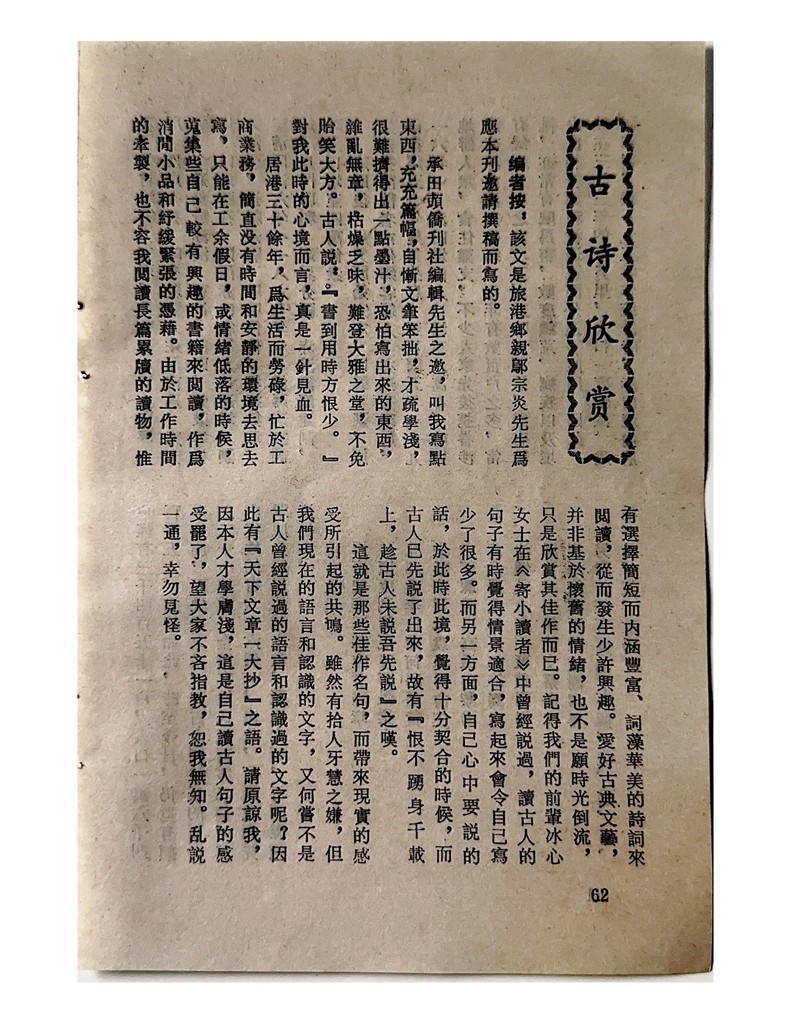 古诗欣赏
編者按：該文是旅港鄉親鄺宗炎先生爲
應本刊邀請撰稿而寫的。
承田頭僑刊社編輯先生之邀，叫我寫點
東西，充充篇幅，自慚文筆笨拙，才疏學淺，
很難擠得出一點墨汁，恐怕寫出來的東西，
雜亂無章，枯燥乏味，難登大雅之堂，不免
貽笑大方。古人説：『書到用時方恨少。』
對我此時的心境而言，真是一針見血。
居港三十餘年，爲生活而勞碌，忙於工
商業務，簡直没有時間和安靜的環境去思去
寫，只能在工余假日，或情緒低落的時候，
蒐集些自己較有興趣的書籍來閱讀，作爲
消閒小品和紓緩緊張的憑藉。由於工作時間
的牽製，也不容我閱讀長篇累牘的讀物，惟
有選擇簡短而内涵豐富、詞藻華美的詩詞來
閱讀，從而發生少許興趣。愛好古典文藝，
并非基於懷舊的情緒，也不是願時光倒流，
只是欣賞其佳作而已。記得我們的前輩冰心
女士在《寄小讀者》中曾經説過，讀古人的
句子有時覺得情景適合，寫起來會令自己寫
少了很多。而另一方面，自己心中要説的
話，於此時此境，覺得十分契合的時候，而
古人已先説了出來，故有『恨不踴身千載
上，趁古人未説吾先説』之嘆。
這就是那些佳作名句，而帶來現實的感
受所引起的共鳴。雖然有拾人牙慧之嫌，但
我們現在的語言和認識的文字，又何嘗不是
古人曾經説過的語言和認識過的文字呢？因
此有『天下文章一大抄』之語。請原諒我，
因本人才學膚淺，這是自己讀古人句子的感
受罷了，望大家不吝指教，恕我無知。乱説
一通，幸勿見怪。
62